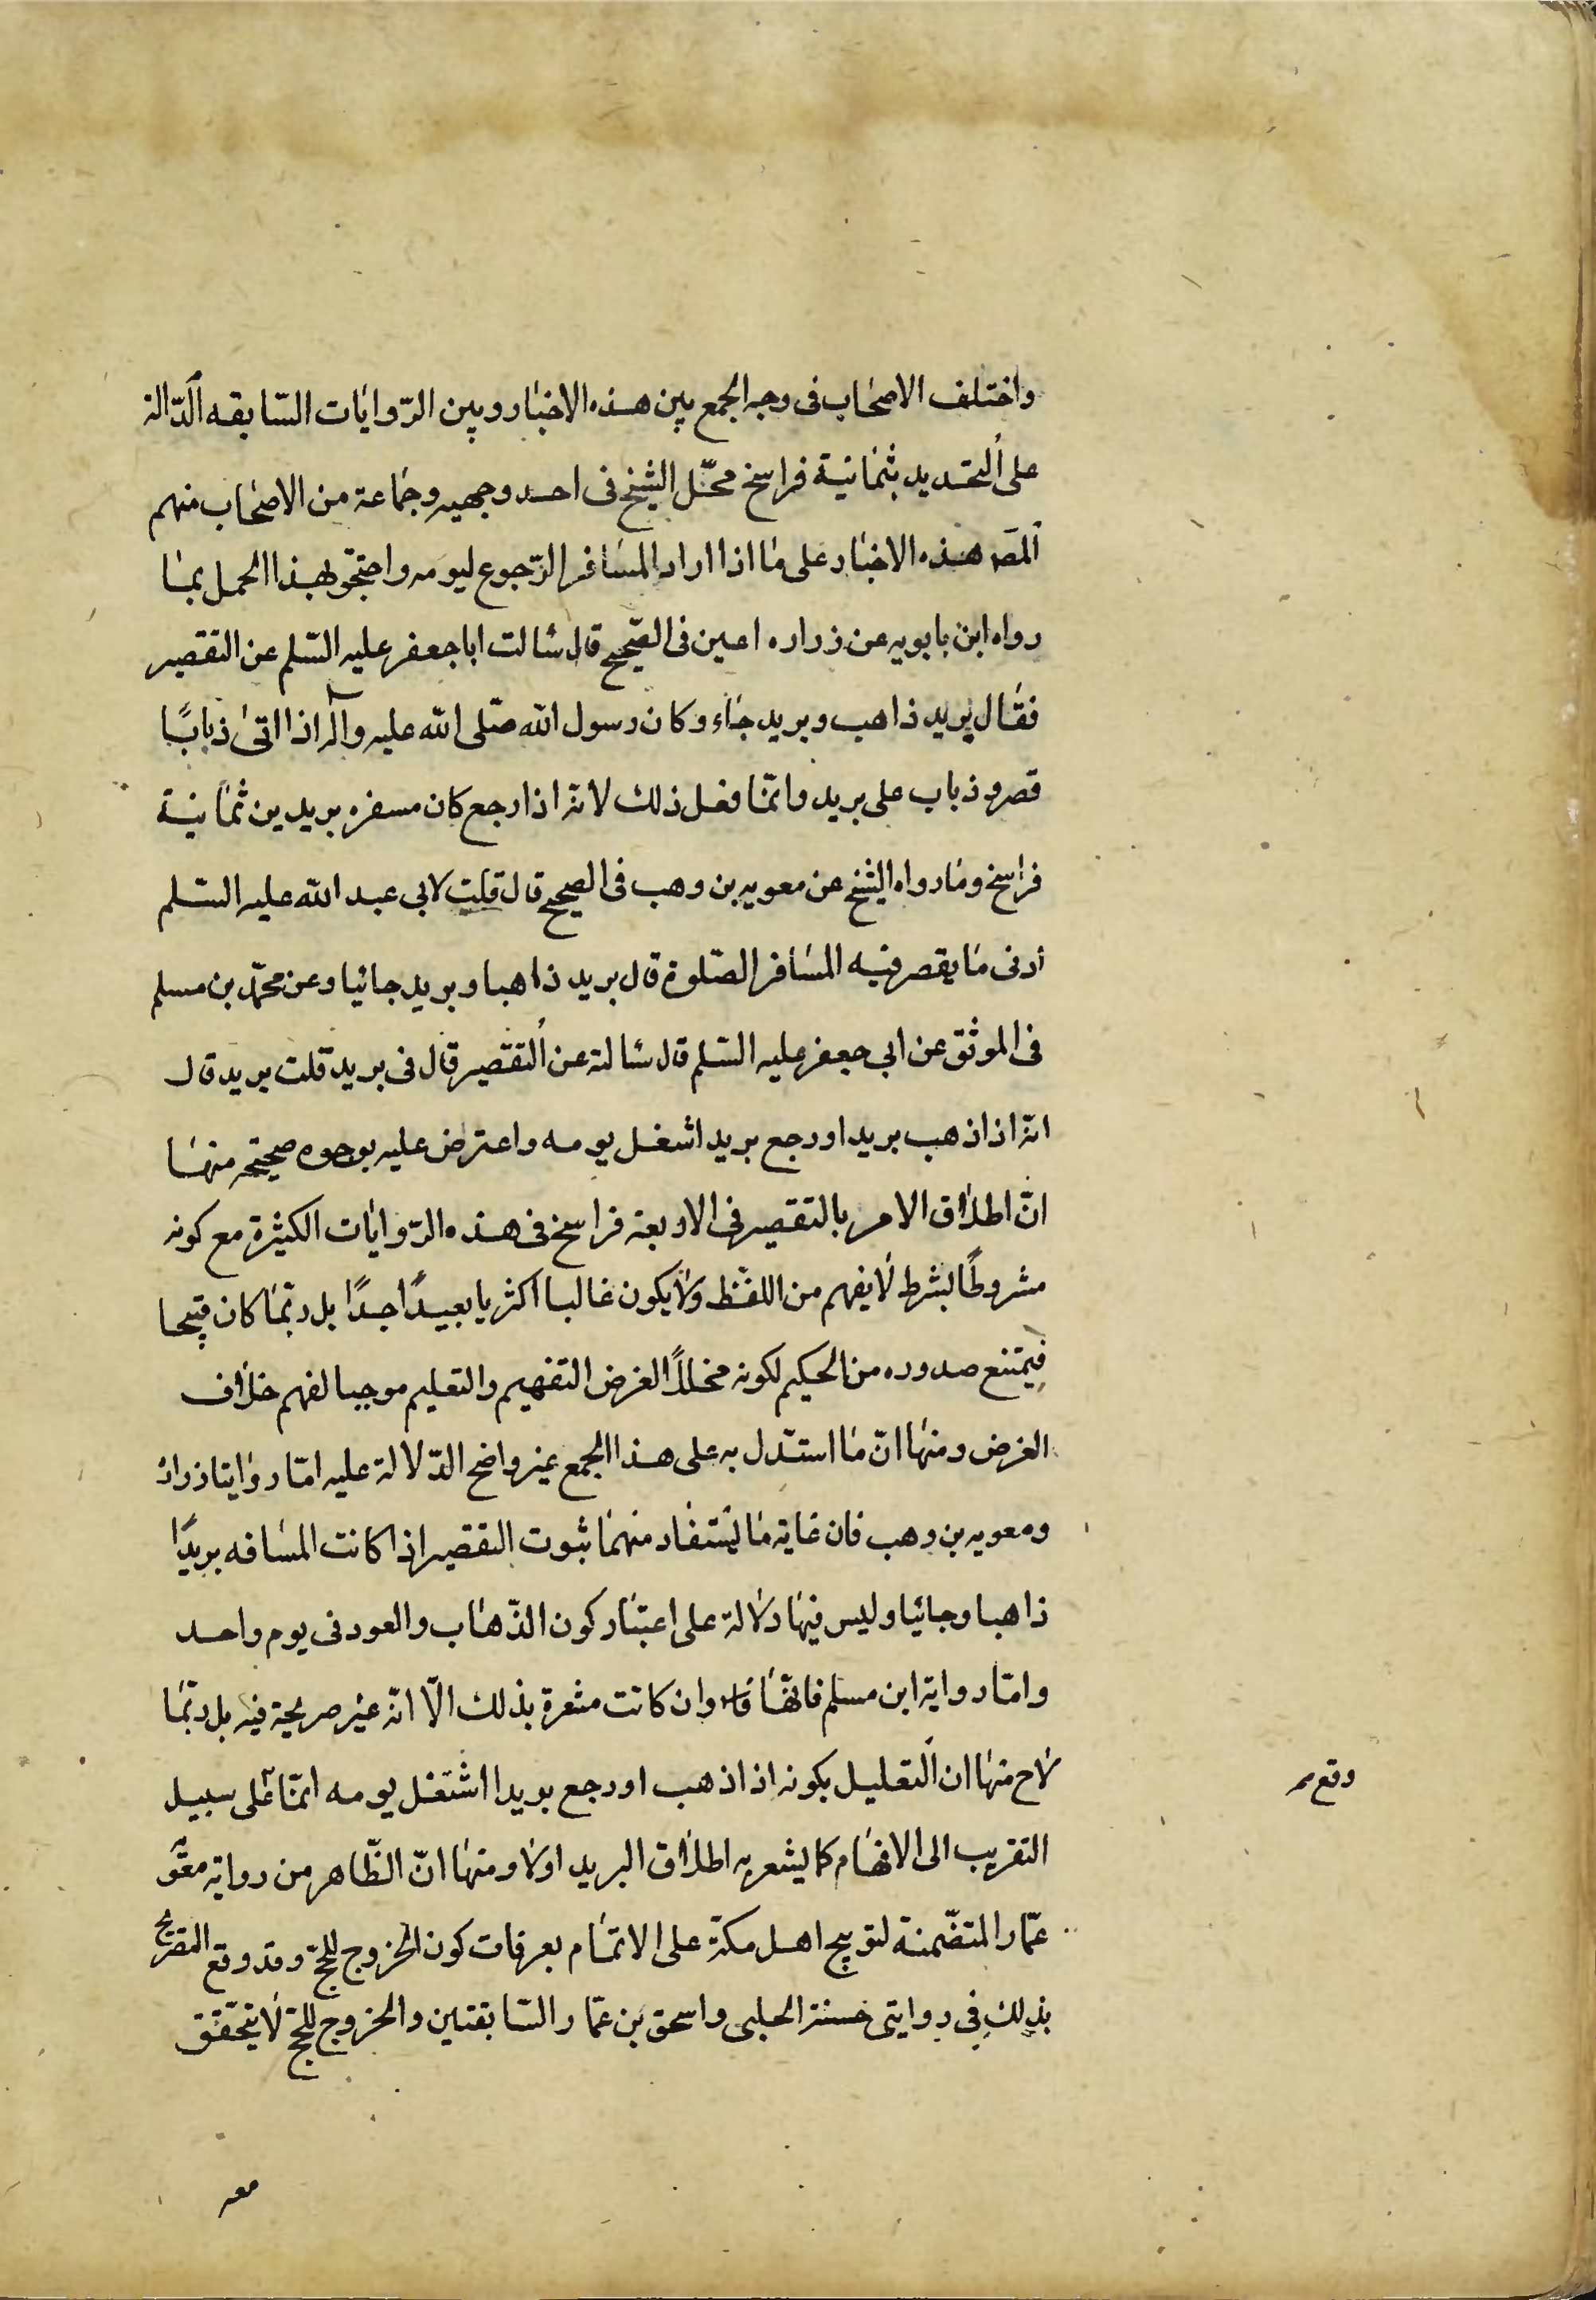 واختلف الاصحاب فى وجه الجمع بين هذه الاخبار وبين الرّوايات السّابقه الدّالة
على التحديد بثمانية فراسخ فحمّل الشيخ فى احد وجهيه وجماعة من الاصحاب منهم
المصَه هذه الاخبار على ما اذا اراد المسافر الرّجوع ليومه واحتجّو لهذا الحمل بما
رواه ابن بابويه عن زراره اعين فى الصّحيح قال سالت ابا جعفر عليه السّلم عن التقصير
فقال بريد ذاهب وبريد جاء وكان رسول الله صلّى الله عليه وآله اذا اتى ذبابًا
قصر وذباب على بريد وانّما فعل ذلك لانه اذا رجع كان سفره بريدين ثمانية
فراسخ وما رواه الشيخ عن معويه بن وهب فى الصحيح قال قلت لابى عبد الله عليه السّلم
أدنى ما يقصر فيه المسافر الصّلوة قال بريد ذاهبا وبريد جائيا وعن محمّد بن مسلم
فى الموثق عن ابى جعفر عليه السّلم قال سالته عن التقصير قال فى بريد قلت بريد قال
انه اذا ذهب بريدا ورجع بريدا شغل يومه واعترض عليه بوجوه صحيحة منها
انّ اطلاق الامر بالتقصير فى الاربعة فراسخ فى هذه الرّوايات الكثيرة مع كونه
مشروطًا بشرط لا يفهم من اللفظ ولا يكون غالبا اكثريا بعيدًا جدًا بل ربّما كان قبيحا
فيمتنع صدوره من الحكيم لكونه مخلاًّ الغرض التفهيم والتعليم موجبا لفهم خلاف
الغرض ومنها انّ ما استدل به على هذا الجمع غير واضح الدّلالة عليه امّا روايتا زرارة
ومعويه بن وهب فان غاية ما يستفاد منهما ثبوت التقصير اذا كانت المسافه بريدًا
ذاهبا وجائيا وليس فيها دلالة على اعتبار كون الذّهاب والعود فى يوم واحد
وامّا رواية ابن مسلم فانّها وان كانت مشعرة بذلك الّا انّه غير صريحة فيه بل ربّما
لاح منها ان التعليل بكونه اذا ذهب اورجع بريدا اشتغل يومه انّما على سبيل
وقع
التقريب الى الافهام كما يشعر به اطلاق البريد اولا ومنها انّ الظّاهر من رواية معوّ
عمّار المتضّمنة لتوبيح اهل مكّة على الاتمام بعرفات كون الخروج للحجّ وقد وقع التصريح
بذلك فى روايتى حسنة الحلبى واسحق بن عمّار السّابقتين والخروج للحجّ لا يتحقّق
معه